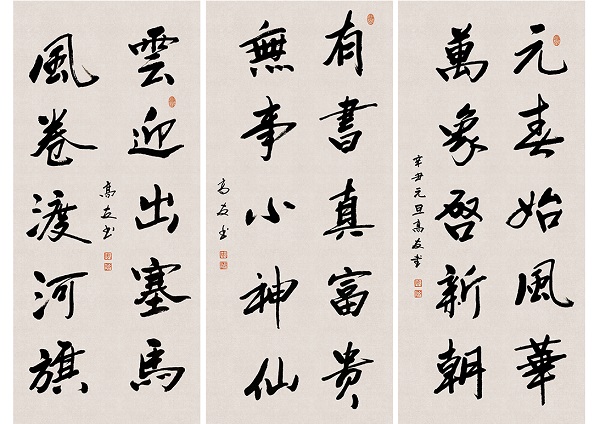 元春始風華
萬象啓新朝
辛丑元旦高友書
有書真富贵
無事小神仙
高友书
雲迎出塞馬
風卷渡河旗
高友书